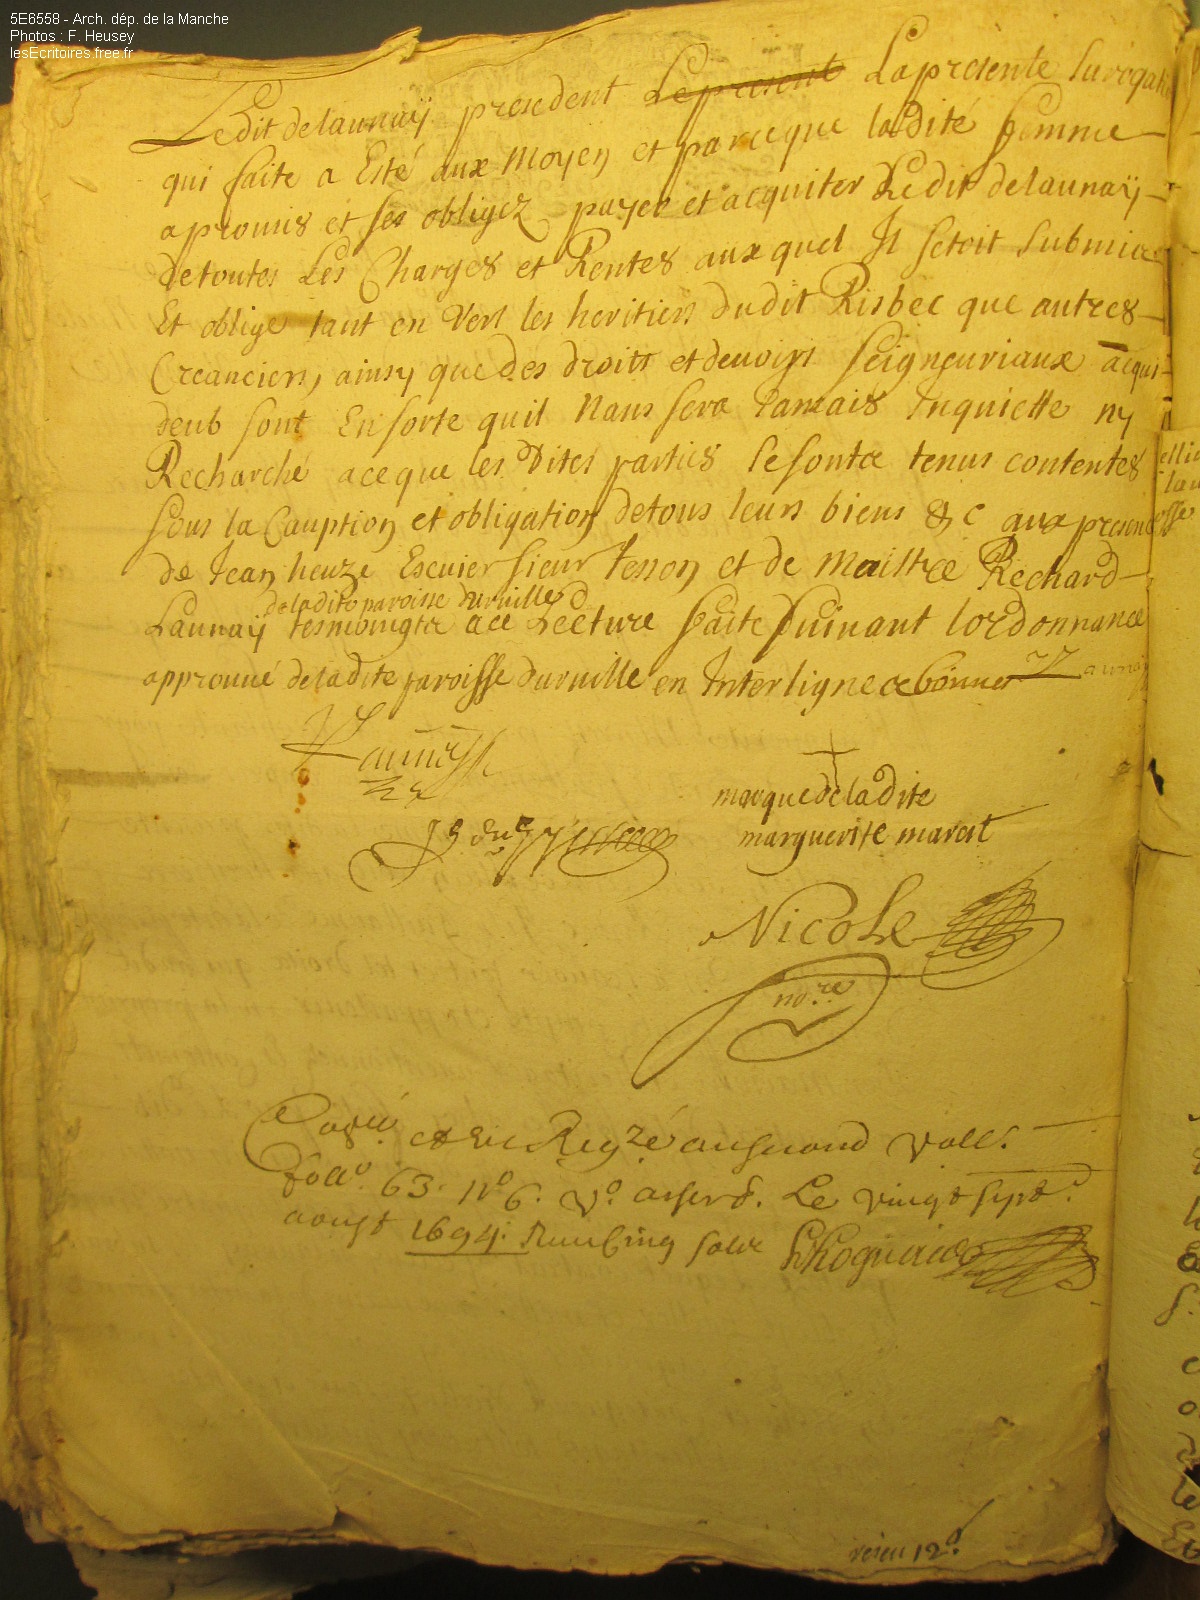 5E6558 - Arch. dép. de la Manche
Photos : F. Heusey
lesEcritoires.free.fr
Ledit delaunaÿ presedent Le present La presente surogati
qui faite a Esté aux moyen et parceque ladite femme
a promis et ses obligez payer et acquiter Ledit delaunaÿ
detoutes Les Charges et Rentes aux quel Il setoit submie
Et oblige tant en vers les heritiers dudit Risbec que autres
Creanciers, ainsy que des droits et deuoirs seigneuriaux acqui
deub sont En sorte quil Nans sera Jamais Inquiette ny
Recharché aceque les Dites parties se sont tenus contentes
sous la Cauption et obligation detous leurs biens &c aux presence
de Jean heuze Escuier sieur tesson et de Maistre Rechard
deladite paroisse durville
Launaÿ tesmoingtz ace Lecture faite suiuant lordonnance
approuué deladite paroisse duruille en Interligne bonne
marque de ladite
marguerite marest
Nicolle
no.re
et Reg.ré au second voll.
foll.o 63. n.o 6. v.o Le vingt sept.
aoust 1694. solz
12.d